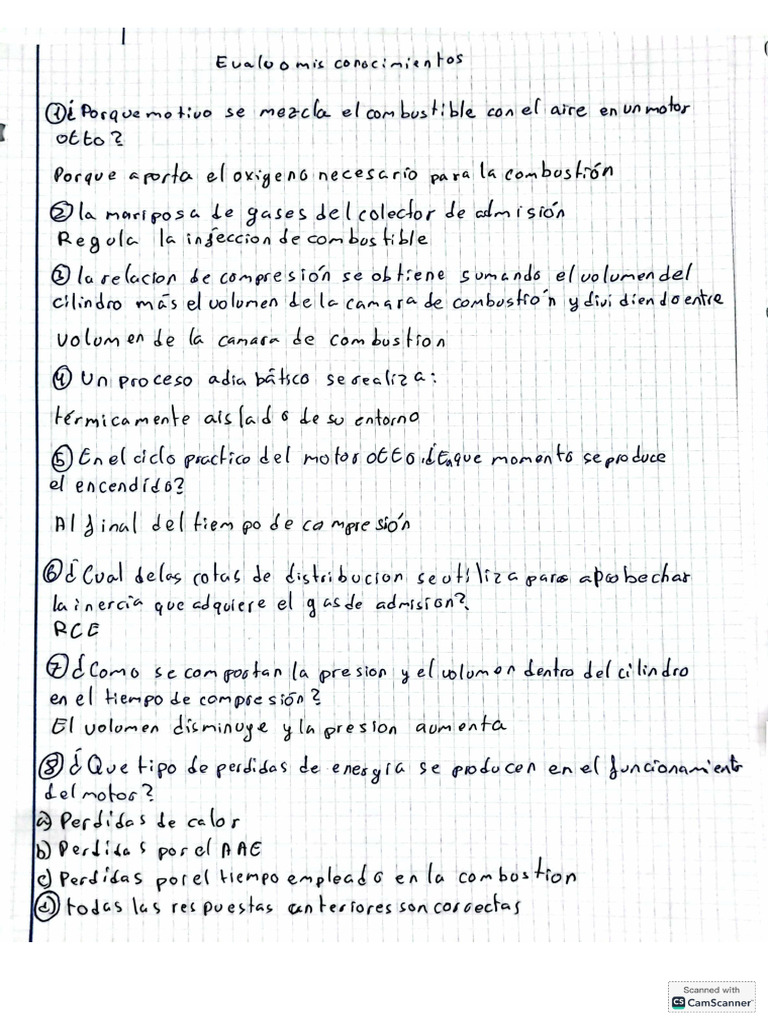 Evaluo mis conocimientos
① ¿Porque motivo se mezcla el combustible con el aire en un motor
otto?
Porque aporta el oxigeno necesario para la combustión
② la mariposa de gases del colector de admisión
Regula la inseccion de combustible
③ la relacion de compresión se obtiene sumando el volumen del
cilindro más el volumen de la camara de combustión y dividiendo entre
volumen de la camara de combustion
④ Un proceso adiabático se realiza:
térmicamente aislado de su entorno
⑤ En el ciclo practico del motor otto ¿Enque momento se produce
el encendido?
Al final del tiempo de compresión
⑥ ¿Cual de las cotas de distribucion se utiliza para aprobechar
la inercia que adquiere el gas de admision?
RCE
⑦ ¿Como se comportan la presion y el volumen dentro del cilindro
en el tiempo de compresión?
El volumen disminuye y la presion aumenta
⑧ ¿Que tipo de perdidas de energia se producen en el funcionamiento
del motor?
a) Perdidas de calor
b) Perdidas por el AAE
c) Perdidas por el tiempo empleado en la combustion
d) todas las respuestas anteriores son correctas
Scanned with
CS CamScanner